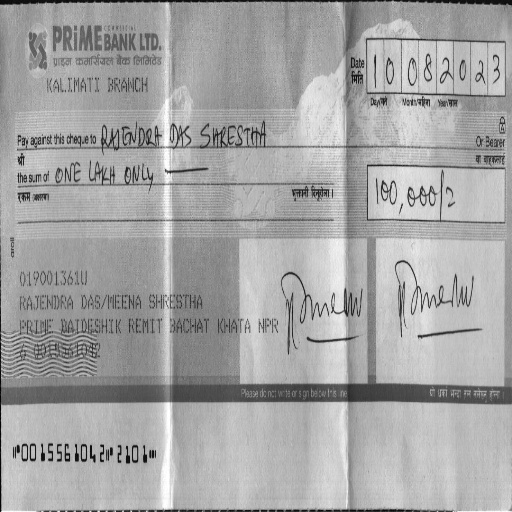 PRIME COMMERCIAL BANK LTD.
प्राइम कमर्सियल बैंक लिमिटेड
KALIMATI BRANCH
Date
मिति
10082023
Day/गते Month/महिना Year/साल
Pay against this cheque to RAJENDRA DAS SHRESTHA
Or Bearer
श्री
वा वाहकलाई
the sum of ONE LAKH ONLY
रकम (अक्षरमा)
भुक्तानी दिनुहोला ।
100,000/2
019001361U
RAJENDRA DAS/MEENA SHRESTHA
PRIME BAIDESHIK REMIT BACHAT KHATA NPR
Please do not write or sign below this line
⑈0015561042⑈2101⑈